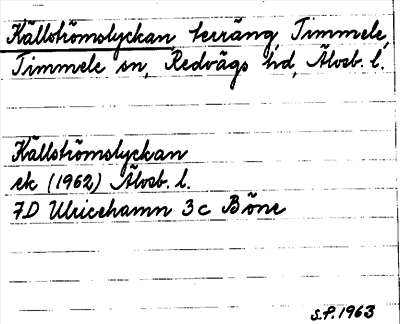 Källströmslyckan, terräng, Timmele,
Timmele sn, Redvägs hd, Älvsb. l.
Källströmslyckan
ek (1962) Älvsb. l.
7D Ulricehamn 3c Böne
S.P. 1963